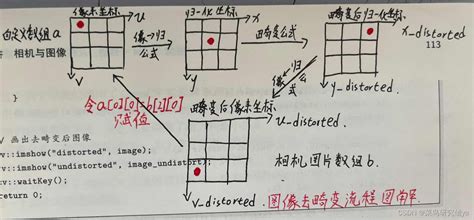 像素坐标
自定义数组a
u
v
归一化坐标
x
y
像→归
公式
畸变公式
畸变后归一化坐标
x_distorted
113
y_distorted.
相机与图像
归→像
公式
畸变后像素坐标
u_distorted.
v_distorted.
令a[0][0]=b[2][0]
赋值
相机图片数组b.
图像去畸变流程图解.
}
// 画出去畸变后图像
cv::imshow("distorted", image);
cv::imshow("undistorted", image_undistort);
cv::waitKey();
return 0;